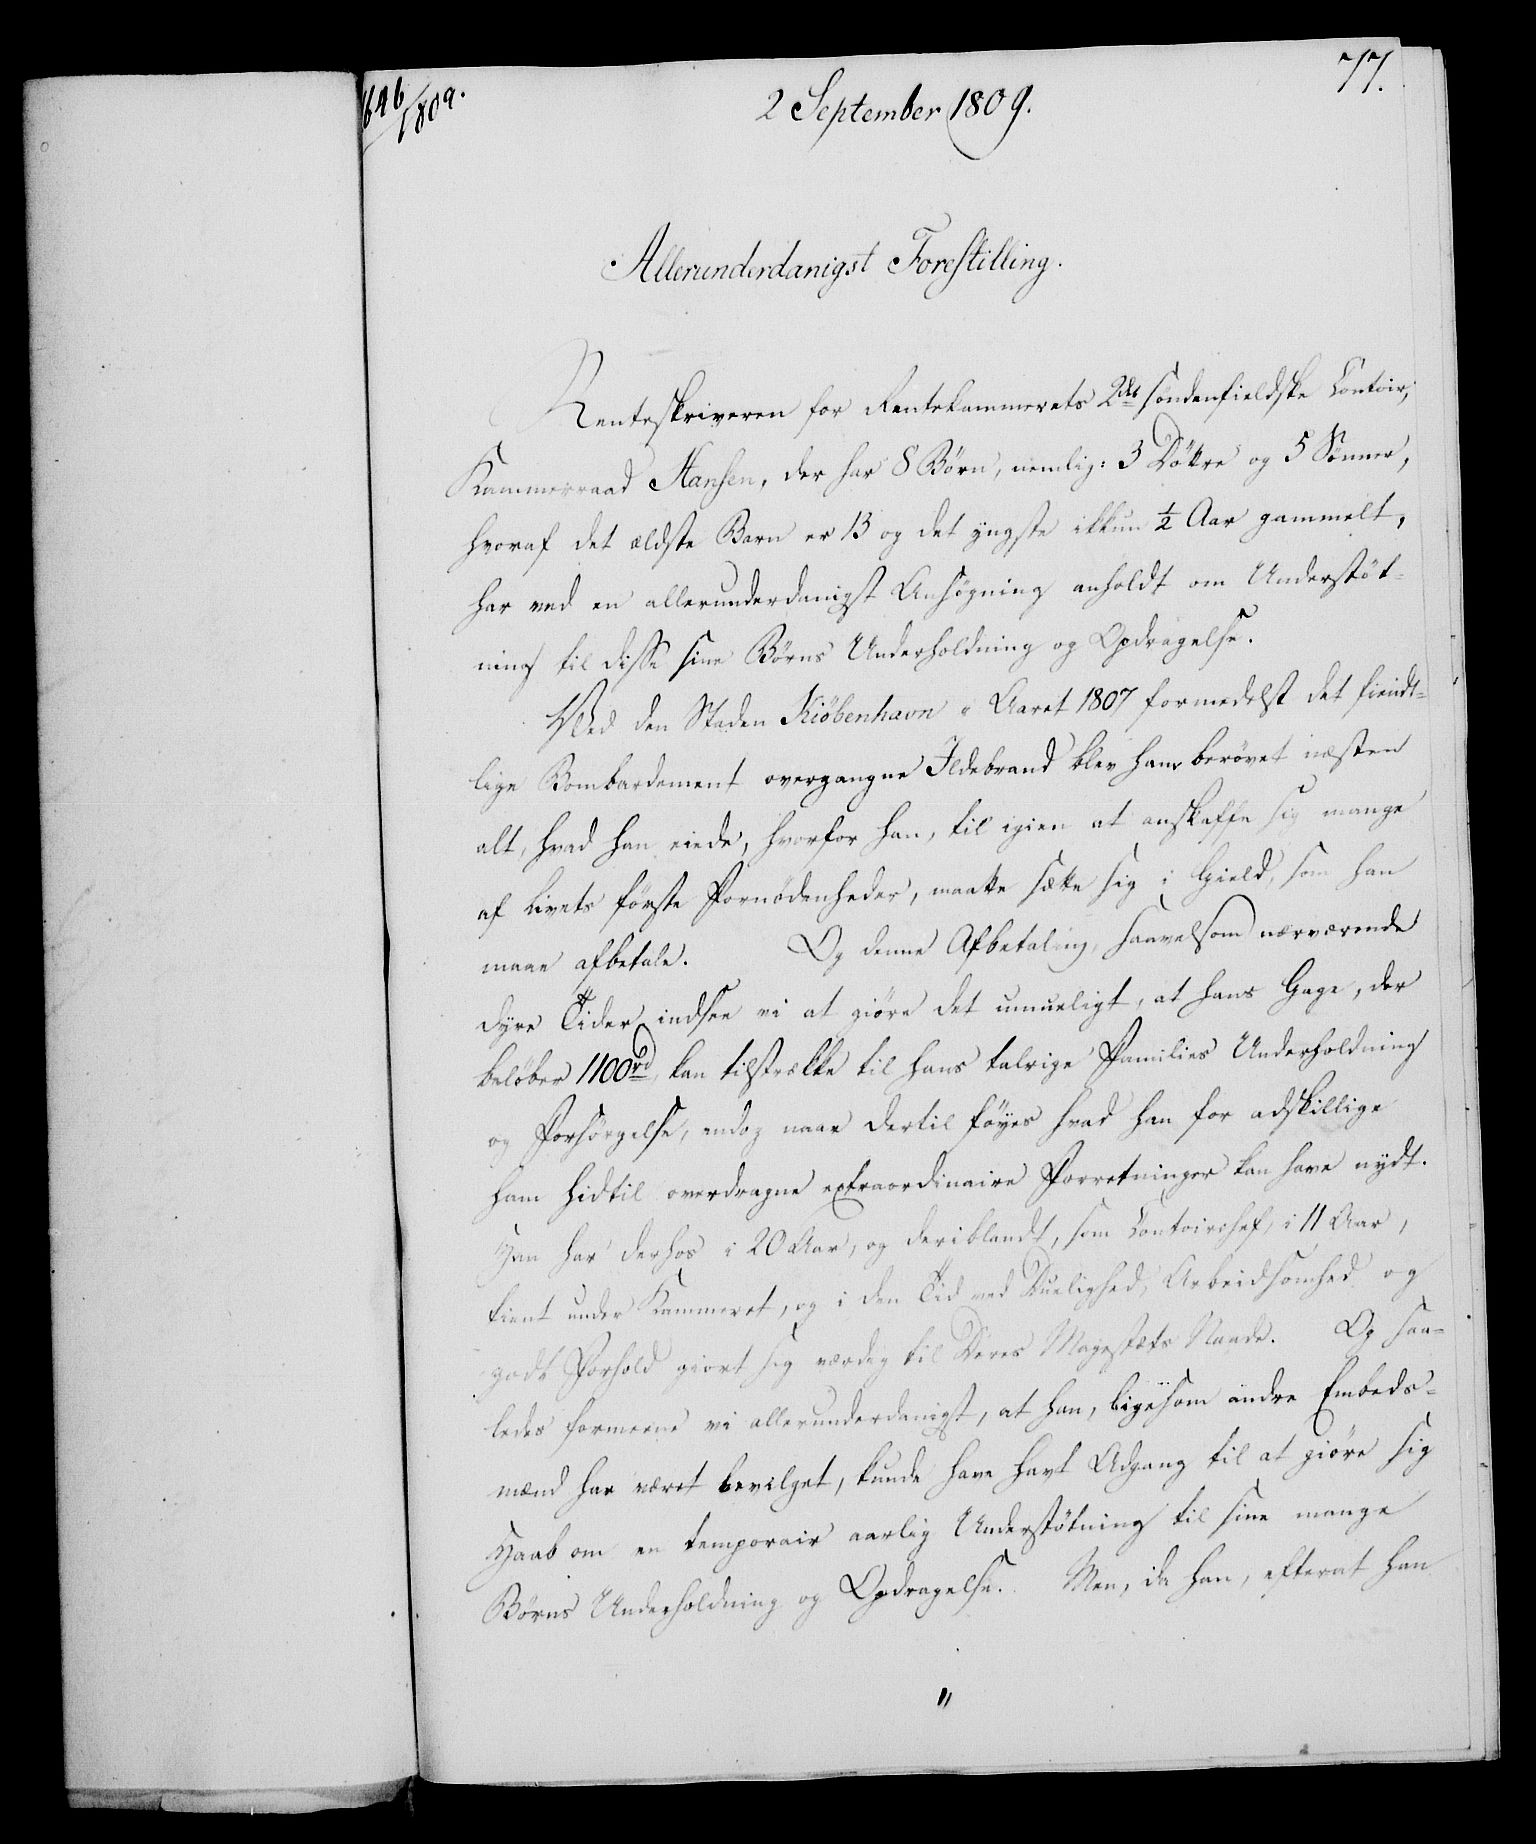 1646/1809.
77.
2 September 1809.
Allerunderdanigst Forestilling.
Renteskriveren for Rentekammerets 2det søndenfieldske Contoir,
Kammerraad Hansen, der har 8 Børn, nemlig: 3 Døttre og 5 Sønner,
hvoraf det ældste Barn er 13 og det yngste ikkun ½ Aar gammelt,
har ved en allerunderdanigst Ansøgning anholdt om Understøt-
ning til disse sine Børns Underholdning og Opdragelse.
Ved den Staden Kiöbenhavn i Aaret 1807 formedelst det fiendt-
lige Bombardement overgangne Ildebrand blev ham berøvet næsten
alt, hvad han eiede, hvorfor han, til igien at anskaffe sig mange
af Livets første Fornødenheder, maatte sætte sig i Gield, som han
maae afbetale. Og denne Afbetaling, saavelsom nærværende
dyre Tider indsee vi at giøre det umueligt, at hans Gage, der
beløber 1100rd, kan tilstrække til hans talrige Families Underholdning
og Forsørgelse, endog naar dertil føyes hvad han for adskillige
ham hidtil overdragne extraordinaire Forretninger kan have nydt.
Han har derhos i 20 Aar, og deriblandt, som Contoirchef, i 11 Aar,
tient under Kammeret, og i den Tid ved Duelighed, Arbeidsomhed og
godt Forhold giort sig værdig til Deres Majestæts Naade. Og saa-
ledes formeene vi allerunderdanigst, at han, ligesom andre Embeds-
mænd har været bevilget, kunde have havt Adgang til at giøre sig
Haab om en temporair aarlig Understøtning til sine mange
Børns Underholdning og Opdragelse. Men, da han, efterat han
"